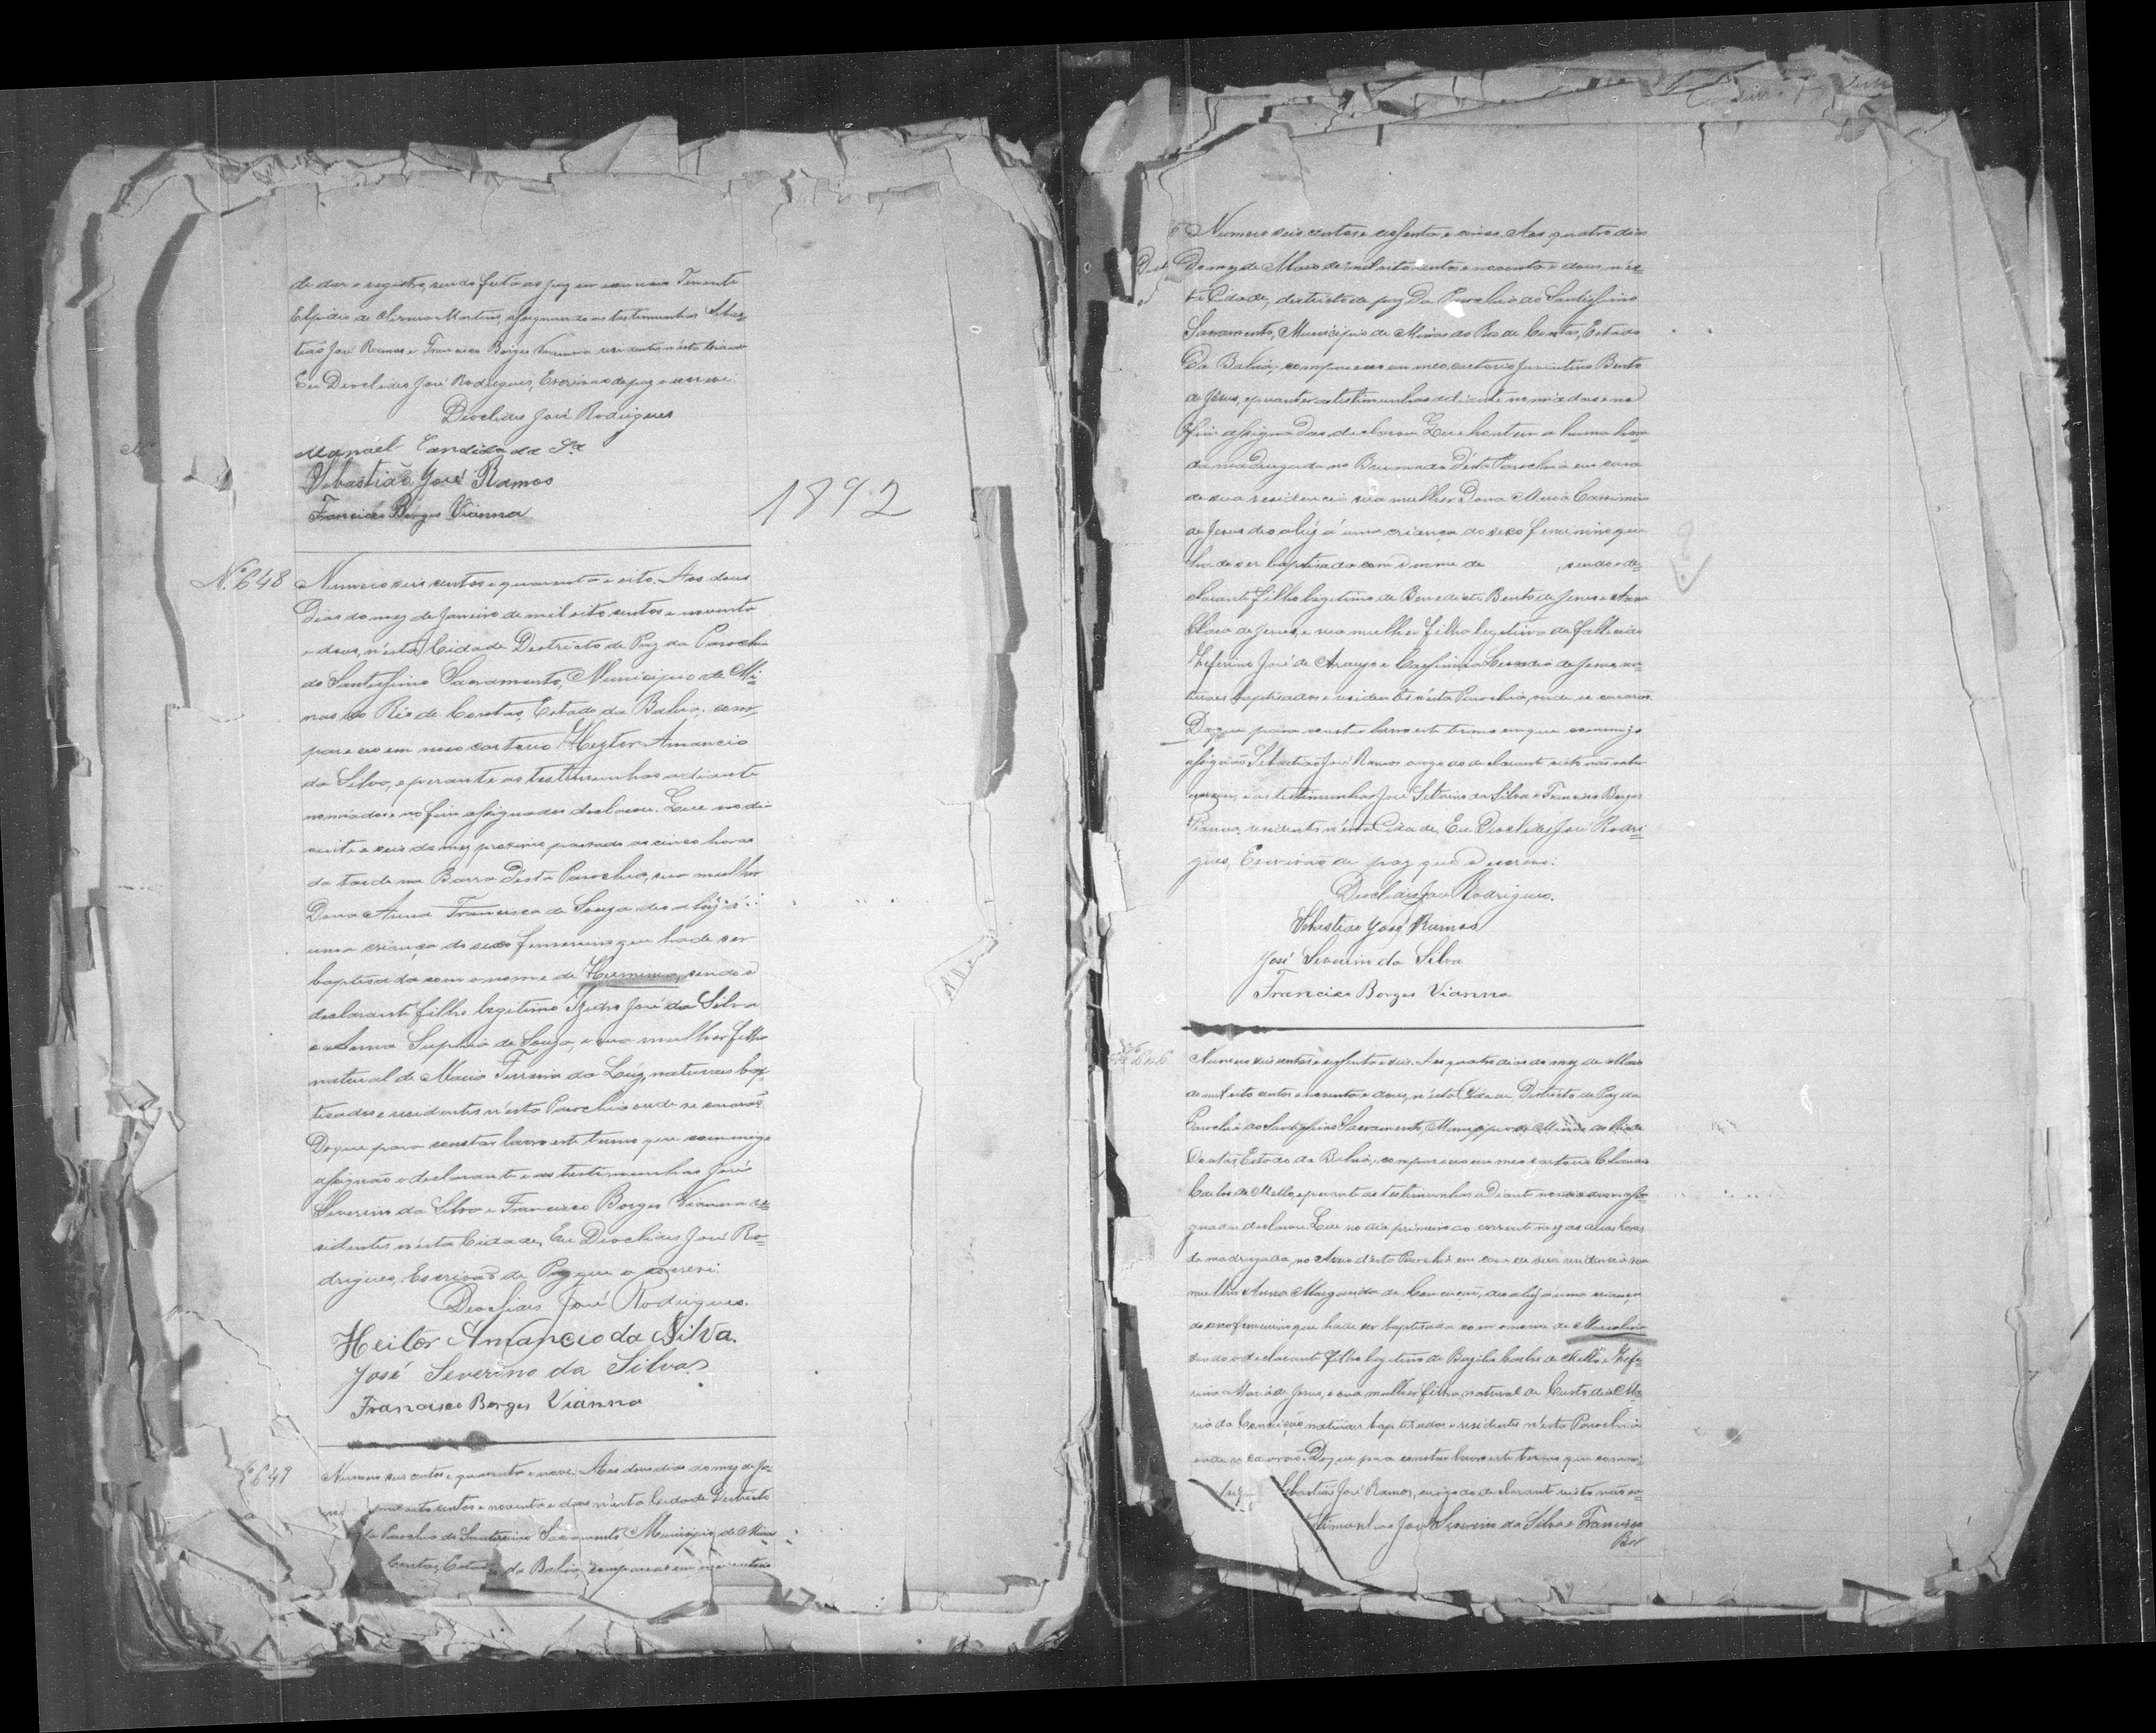 de dar o registro, sendo feito as paz em
Elpidio de Oliveira Martins, assignando as testimunhas Sebas-
tião José Ramos e Francisco Borges Vianna residentes n'esta Cidade
Eu Deoclides José Rodrigues, Escrivão de paz o escrevi.
Deoclides José Rodrigues
Manoel Candido da Sª
Sebastião José Ramos
Francisco Borges Vianna
1892
N.º 648
Numero seis centos e quarenta e oito. Aos dous
dias do mez de Janeiro de mil oito centos e noventa
e dous, n'esta Cidade Destricto de Paz da Parochia
do Santissimo Sacramento, Municipio de Mi-
nas do Rio de Contas, Estado da Bahia, com-
pareceo em meo cartorio Heytor Amancio
da Silva, e perante as testimunhas adiante
nomiadas e no fim assignadas declarou: Que no dia
vinte e seis do mez proximo passado as cinco horas
da tarde na Barra d'esta Parochia, sua mulher
Dona Anna Francisca de Souza deo a lúz á
uma criança do sexo femenino que hade ser
baptisada com o nome de Herminia, sendo o
declarante filho legitimo Pedro José da Silva
e Anna Suphia de Souza, e sua mulher filha
natural de Maria Ferreira da Lúz, naturaes bap-
tisados e residentes n'esta Parochia onde se casarão.
Do que para constar lavro este termo que commigo
assignão o declarante e as testimunhas José
Severino da Silva e Francisco Borges Vianna re-
sidentes n'esta Cidade, Eu Deoclides José Ro-
drigues, Escrivão de Paz que o escrevi.
Deoclides José Rodrigues.
Heitor Amancio da Silva.
José Severino da Silva
Francisco Borges Vianna
649
Numero seis centos e quarenta e nove. Aos dous dias do mez de Ja-
mil oito centos e noventa e dous n'esta Cidade Destricto
da Parochia do Santissimo Sacramento, Municipio de Minas
Contas, Estado da Bahia, compareceo em meo cartorio
Numero seis centos e sessenta e cinco. Aos quatro dias
Do mez de Maio de mil oito centos e noventa e dous, n'es-
ta Cidade, districto de paz Da Parochia do Santissimo
Sacramento, Municipio de Minas do Rio de Contas, Estado
Da Bahia, compareceo em meo cartorio Juvintino Bento
de Jesus, e perante as testimunhas adiante nomiadas e no
fim assignadas declarou: Que hontem a huma hora
da madrugada, no Brumado d'esta Parochia em casa
de sua residencia sua mulher Dona Maria Cassimira
de Jesus deo a lúz á uma criança do sexo feminino que
hade ser baptisada com o nome de , sendo o de-
clarante filho legitimo de Benedicto Bento de Jesus e Anna
de Jesus, e sua mulher filha legitima do fallecido
Zeferino José de Araujo e Cassimira de Jesus, na-
turaes baptisados e residentes n'esta Parochia, onde se casarão.
Do que para constar lavro este termo em que commigo
assignão Sebastião José Ramos a rogo do declarante visto não saber
escrever, e as testimunhas José Severino da Silva e Francisco Borges
Vianna, residentes n'esta Cidade. Eu Deoclides José Rodri-
gues, Escrivão de paz que o escrevi.
Deoclides José Rodrigues.
Sebastião José Ramos
José Severino da Silva
Francisco Borges Vianna
Nº 666
Numero seis centos e sessenta e seis. Aos quatro dias do mez de Maio
de mil oito centos e noventa e dous, n'esta Cidade, Districto de Paz da
Parochia do Santissimo Sacramento, Municipio de Minas do Rio de
Contas, Estado da Bahia, compareceo em meo cartorio
Carlos de Mello, e perante as testimunhas adiante nomiadas e assi-
gnadas declarou: Que no dia primeiro do corrente mez as duas horas
da madrugada, no d'esta Parochia em casa de sua residencia sua
mulher Anna Margarida da Conceição, deo a lúz á uma criança
do sexo feminino que hade ser baptisada com o nome de Marcolina
sendo o declarante filho legitimo de Bazilio Carlos de Mello e Zefe-
rina Maria de Jesus, e sua mulher filha natural de Custodia Ma-
ria da Conceição, naturaes baptisados e residentes n'esta Parochia
onde se casarão. Do que para constar lavro este termo que commi-
Sebastião José Ramos, a rogo do declarante visto não sa-
timunhas José Severino da Silva e Francisco
Bor